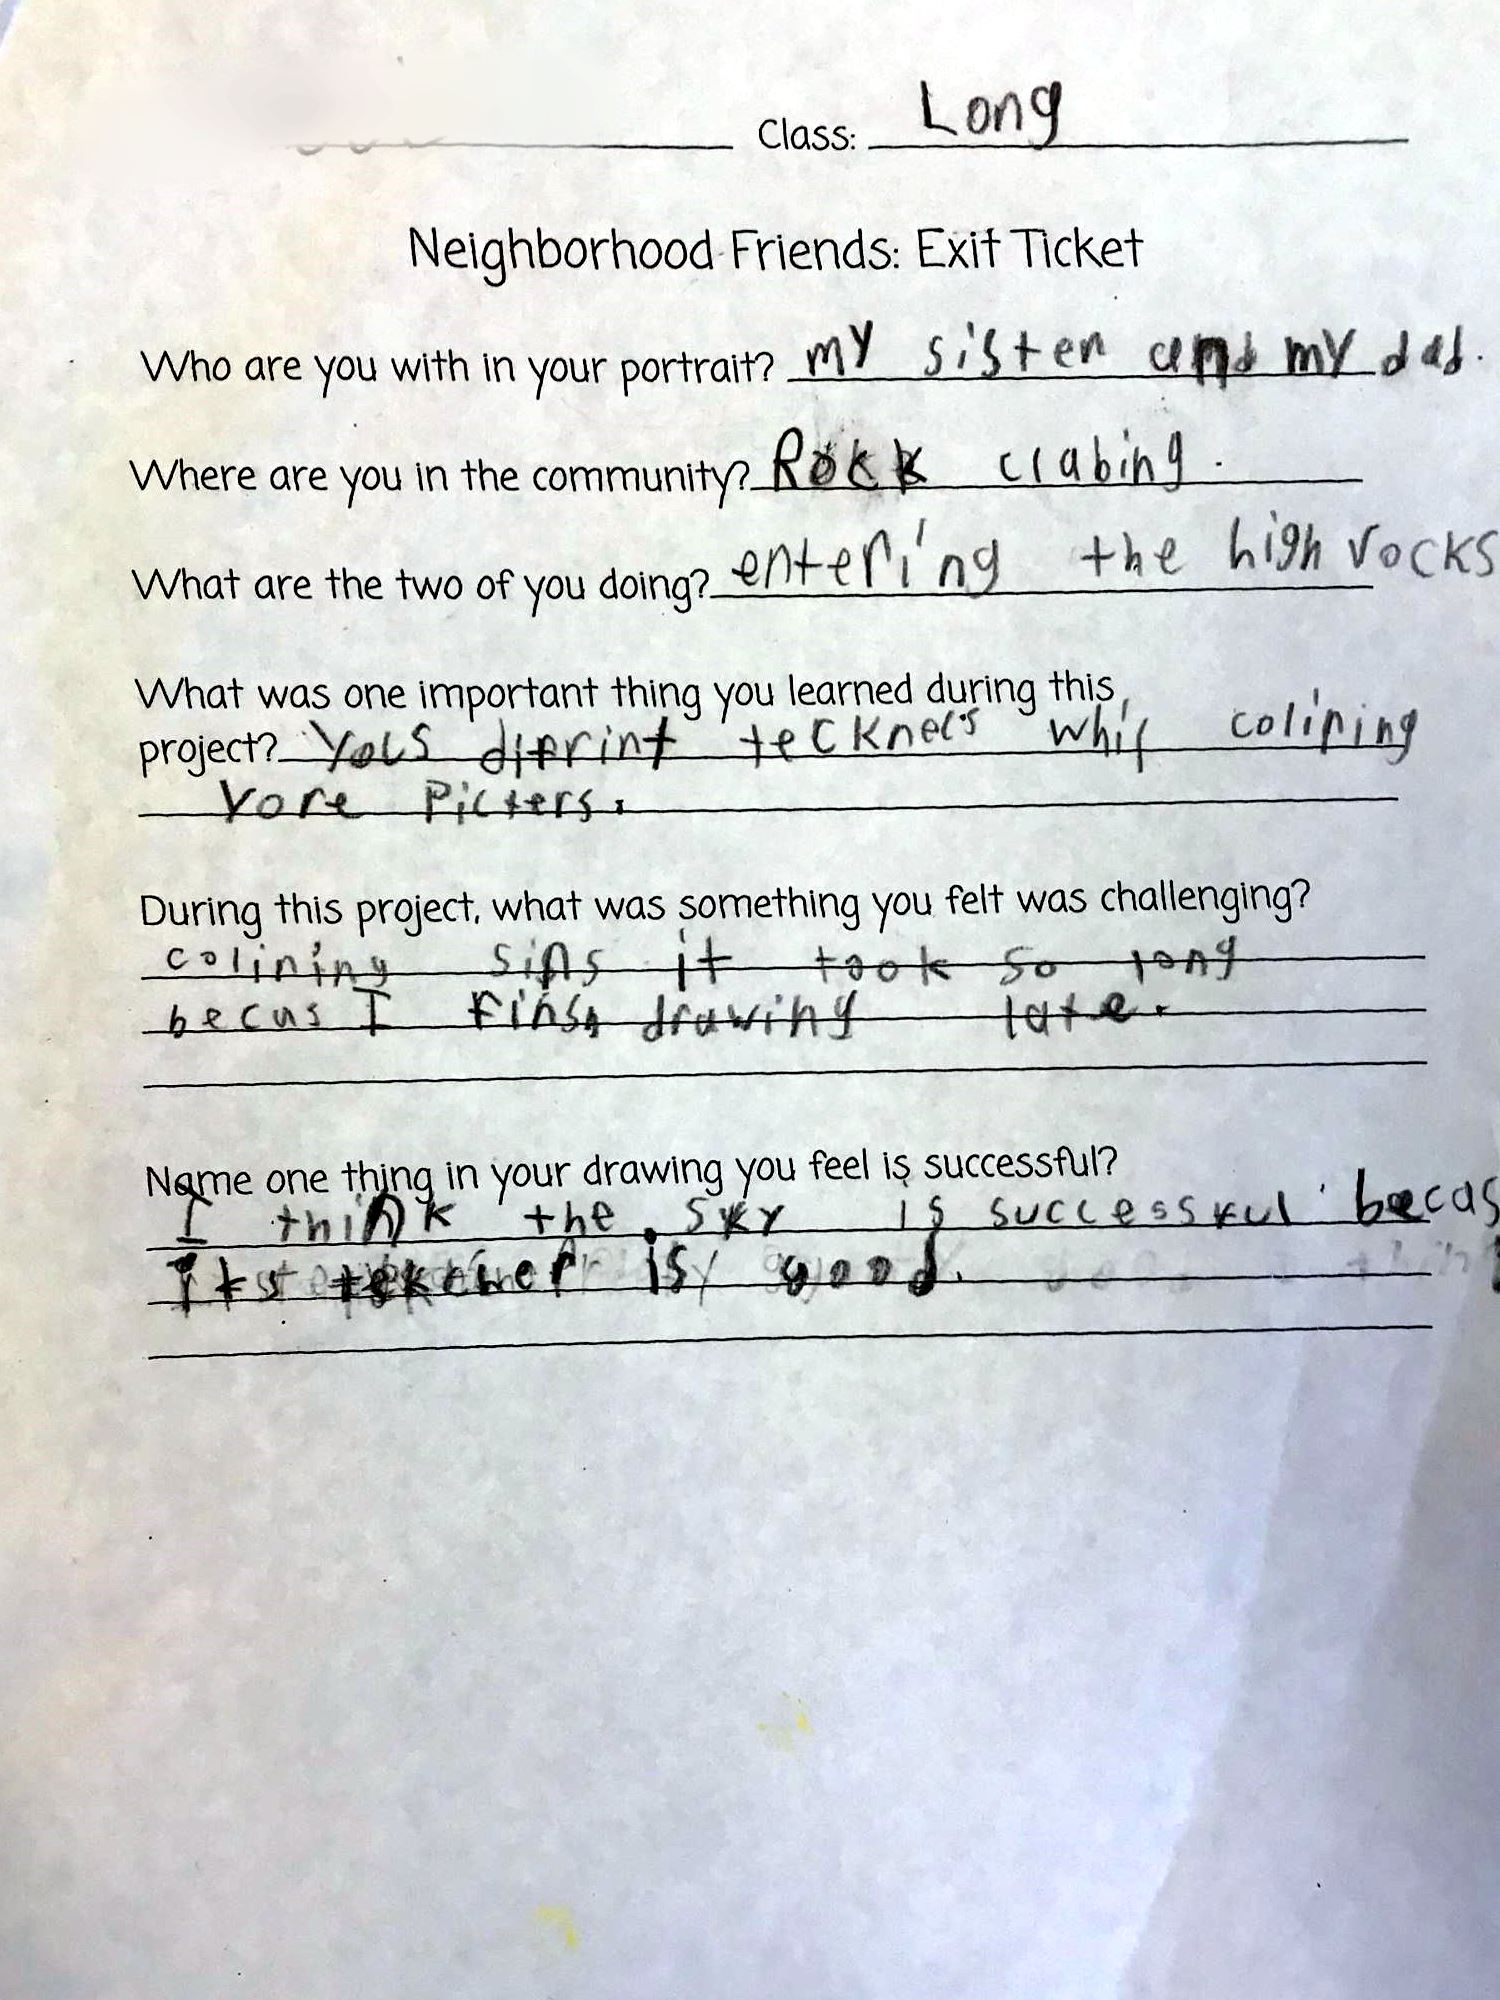 Class: Long
Neighborhood Friends: Exit Ticket
Who are you with in your portrait? my sister and my dad.
Where are you in the community? Rock clabing.
What are the two of you doing? entering the high rocks
What was one important thing you learned during this
project? Yous difrint tecknecs whif colining
Yore Picters.
During this project, what was something you felt was challenging?
colining sins it took so long
becus I finsh drawing late.
Name one thing in your drawing you feel is successful?
I think the sky is successful becas
its tekcher is good.